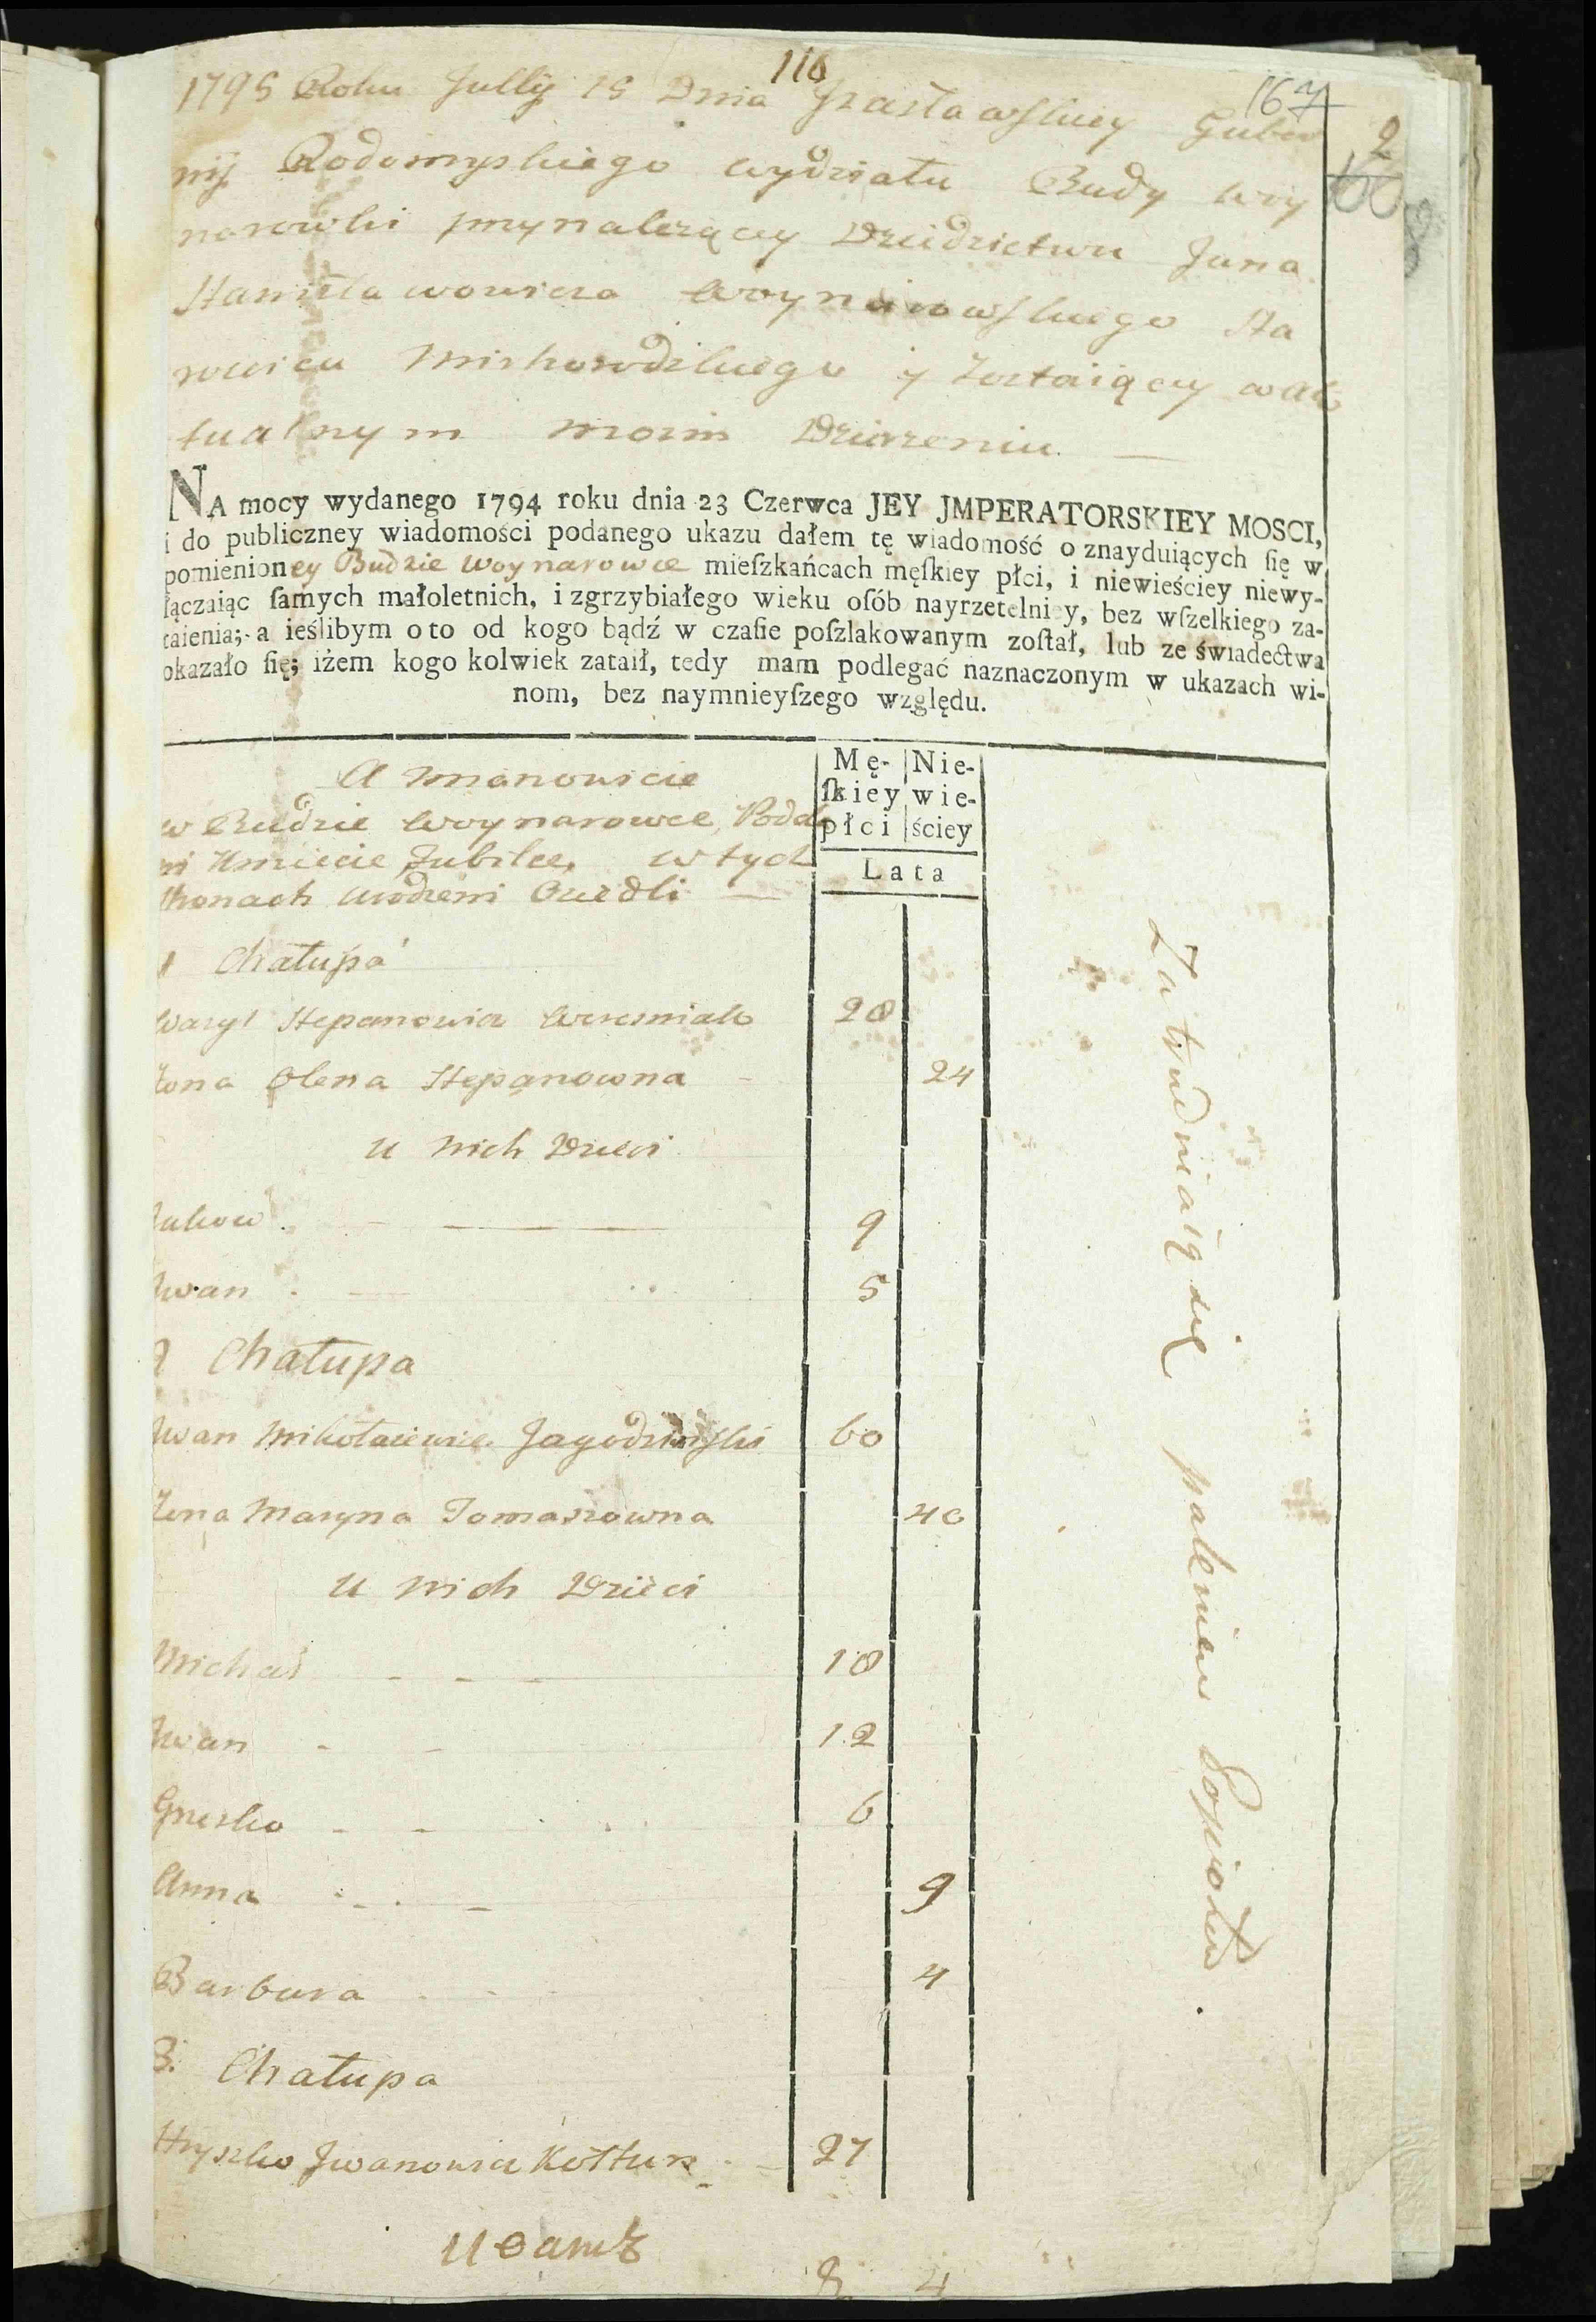 116
167
2
1795 Roku Jullij 15 Dnia Izasławskiey Guber
nij Radomyskiego wydziału Budy Woy
narowki przynależący Dziedzictwu Jana
Stanisławowicza Woynarowskiego Sta
rościca i Zostaiący w ak
tualnym moim Dzierżeniu
NA mocy wydanego 1794 roku dnia 23 Czerwca JEY JMPERATORSKIEY MOSCI,
i do publiczney wiadomości podanego ukazu dałem tę wiadomość o znayduiących ſię w
pomienioney Budzie Woynarowce mieſzkańcach męſkiey płci, i niewieściey niewy-
łączaiąc ſamych małoletnich, i zgrzybiałego wieku oſób nayrzetelniey, bez wſzelkiego za-
taienia; a ieślibym o to od kogo bądź w czaſie poſzlakowanym zoſtał, lub ze świadectwa
okazało ſię; iżem kogo kolwiek zataił, tedy mam podlegać naznaczonym w ukazach wi-
nom, bez naymnieyſzego względu.
A mianowicie
w Budzie Woynarowce, Podda
ni w tych
Stronach Osiedli
Mę- Nie-
ſkiey wie-
płci ściey
Lata
1 Chałupa
Wasyl Stepanowicz 28
Żona Olena Stepanowna 24
U nich Dzieci
Jakow 9
Jwan 5
2 Chałupa
Jwan Mikołaiewicz Jagodzinski 60
Żona Maryna Tomaszowna 40
U nich Dzieci
Michał 18
Jwan 12
Grzesko 6
Anna 9
Barbara 4
3. Chałupa
Hryszko Jwanowicz Kołtun 27
Zatrudniaią się paleniem Popiołu.
8 4